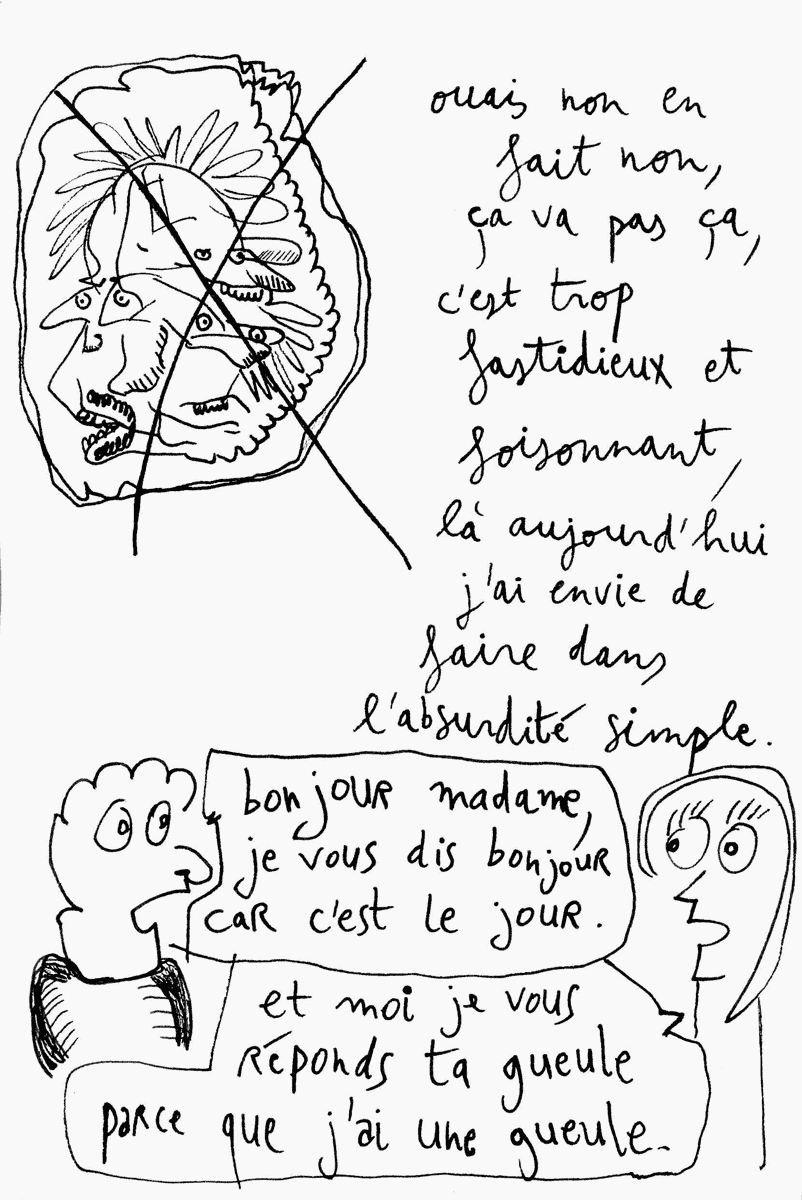 ouais non en
fait non,
ça va pas ça,
c'est trop
fastidieux et
foisonnant,
là aujourd'hui
j'ai envie de
faire dans
l'absurdité simple.
bonjouR madame,
je vous dis bonjouR
caR c'est le jouR.
et moi je vous
Réponds ta gueule
paRce que j'ai une gueule.